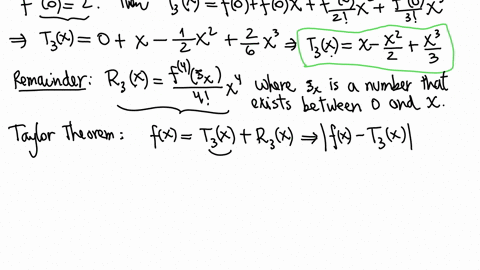 f'''(0) = 2. Then T₃(x) = f(0) + f'(0)x + f''(0)/2! x² + f'''(0)/3! x³
⇒ T₃(x) = 0 + x − 1/2 x² + 2/6 x³ ⇒ T₃(x) = x − x²/2 + x³/3
Remainder: R₃(x) = f⁽⁴⁾(ξₓ)/4! x⁴ where ξₓ is a number that
exists between 0 and x.
Taylor Theorem: f(x) = T₃(x) + R₃(x) ⇒ |f(x) − T₃(x)|